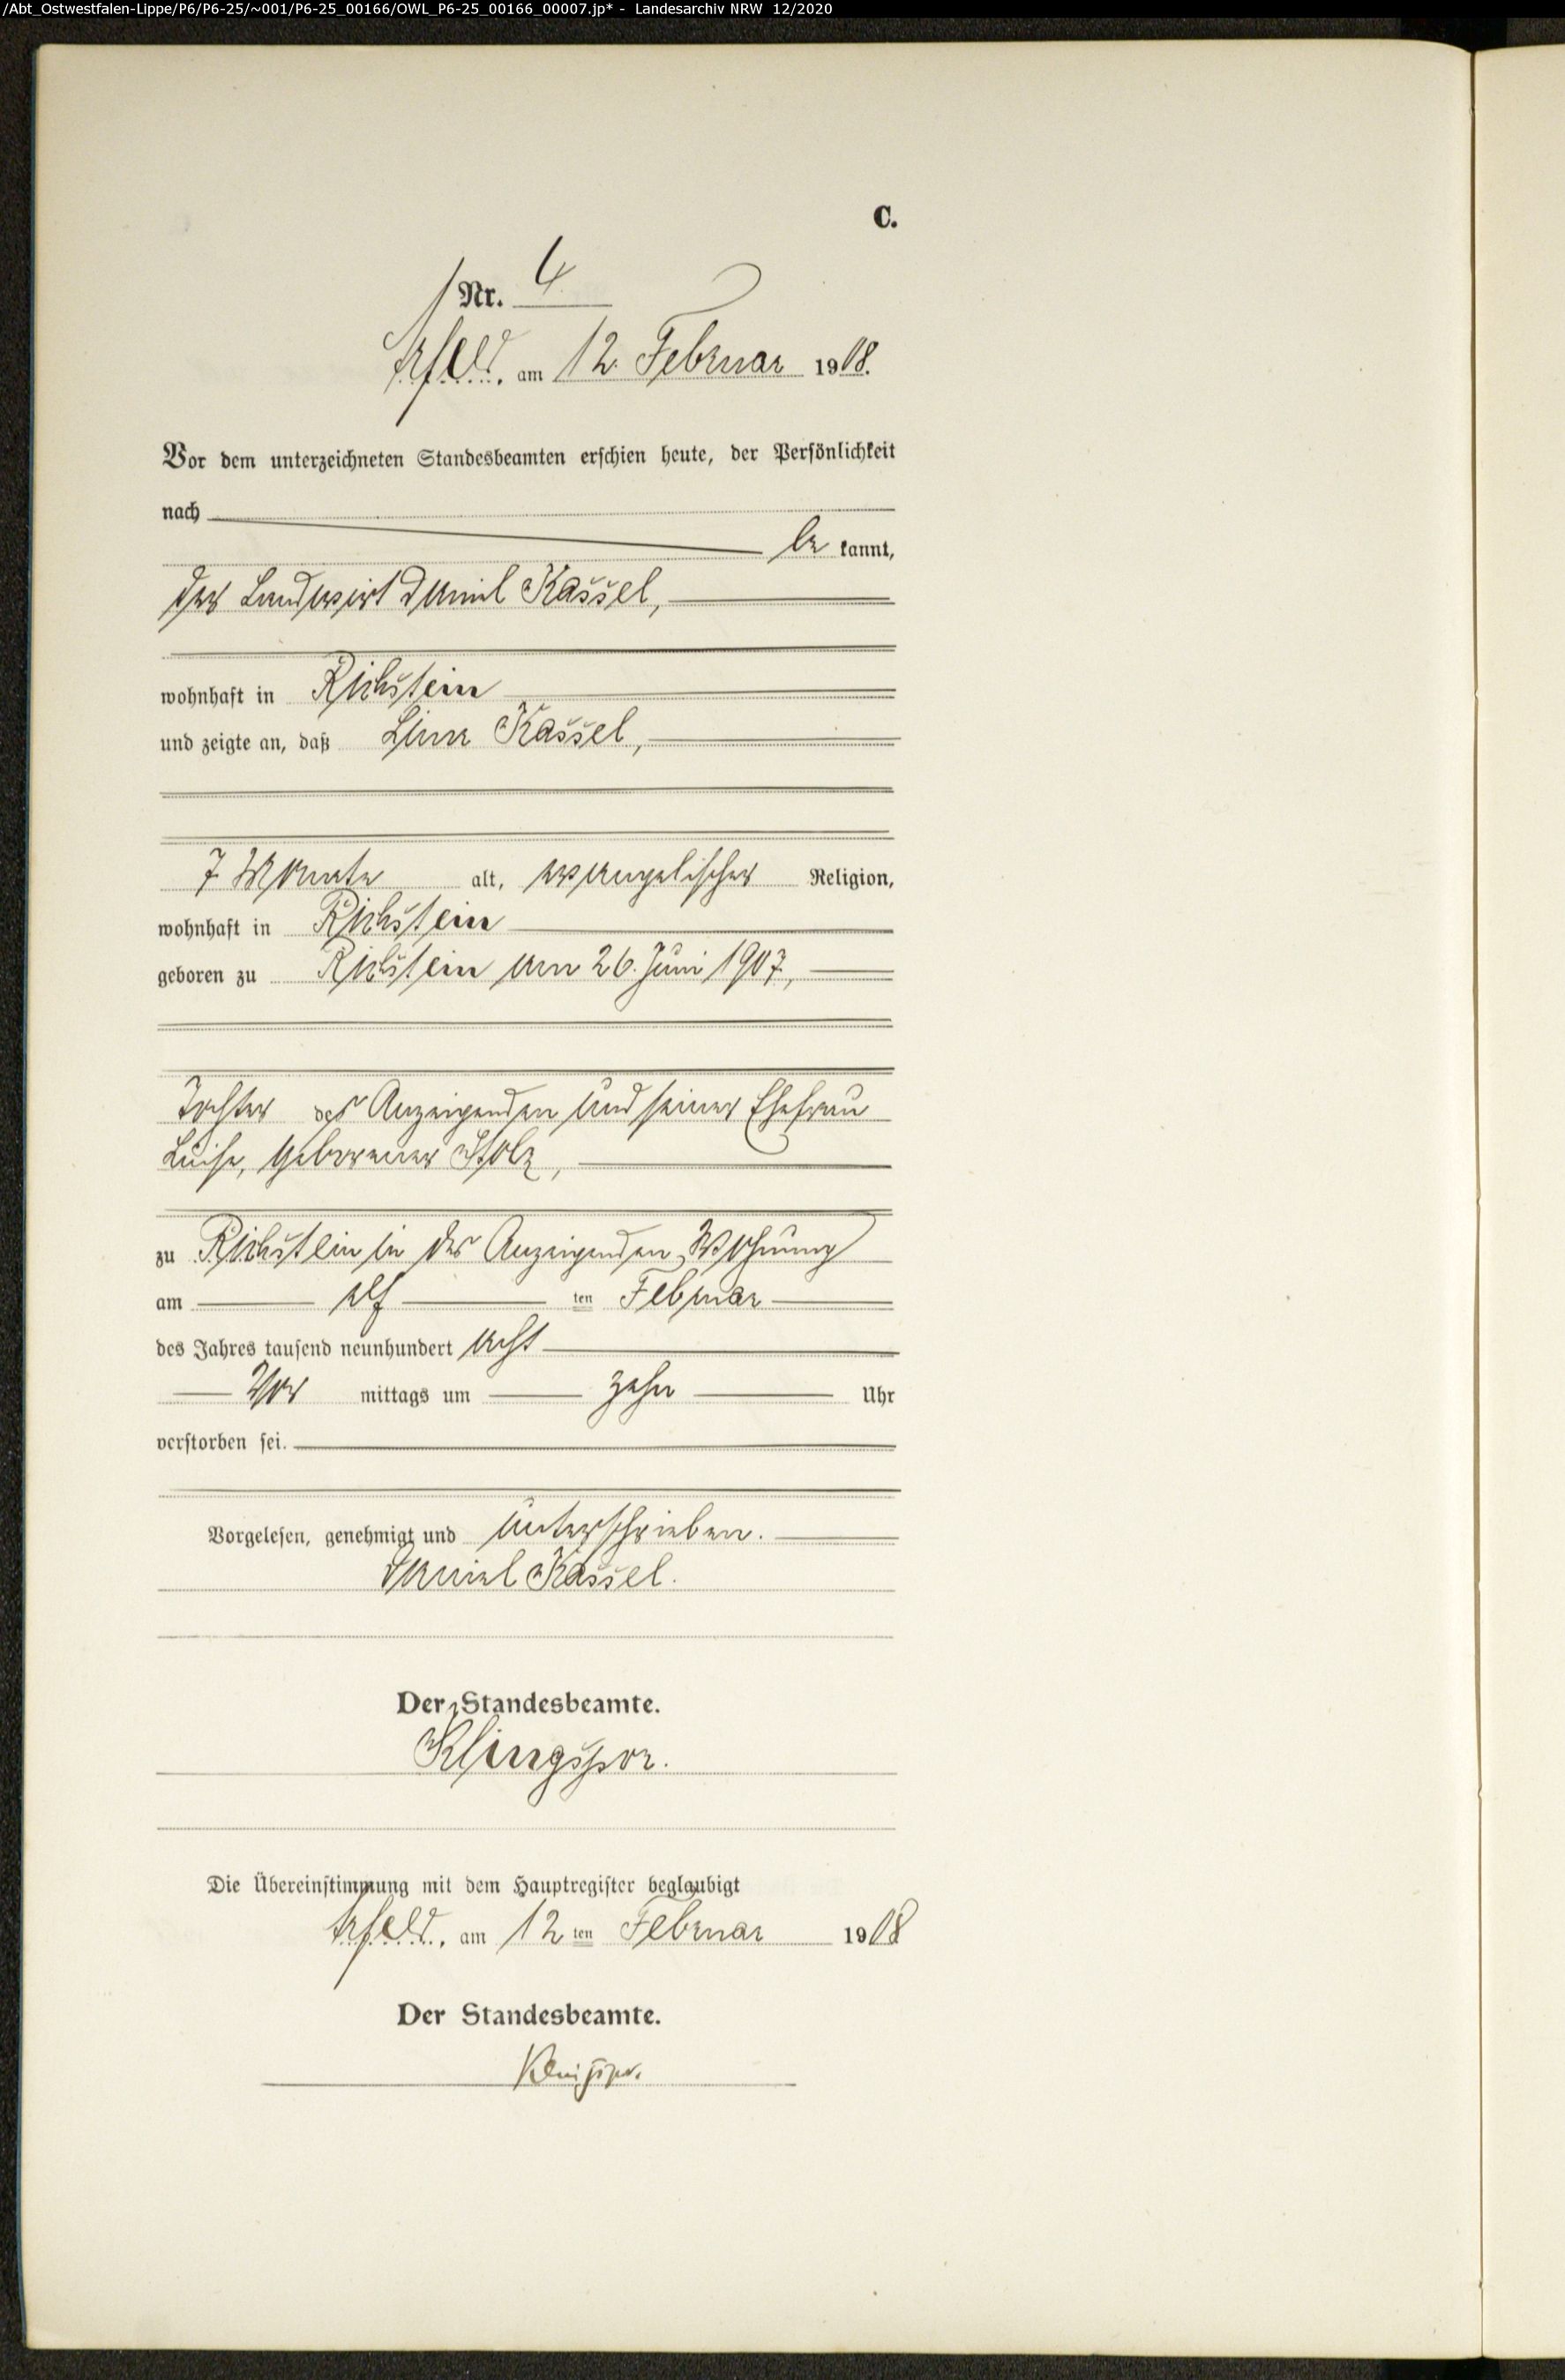 /Abt_Ostwestfalen-Lippe/P6/P6-25/~001/P6-25_00166/OWL_P6-25_00166_00007.jp* - Landesarchiv NRW 12/2020
C.
Nr. 4
Arfeld, am 12. Februar 1908.
Vor dem unterzeichneten Standesbeamten erschien heute, der Persönlichkeit
nach
be kannt,
der Landwirt Daniel Kassel,
wohnhaft in Richstein
und zeigte an, daß Lina Kassel,
7 Monate alt, evangelischer Religion,
wohnhaft in Richstein
geboren zu Richstein am 26. Juni 1907,
Tochter des Anzeigenden und seiner Ehefrau
Luise, geborener Stolz,
zu Richstein in des Anzeigenden Wohnung
am elf ten Februar
des Jahres tausend neunhundert acht
Vor mittags um zehn Uhr
verstorben sei.
Vorgelesen, genehmigt und unterschrieben.
Daniel Kassel.
Der Standesbeamte.
Klingspor.
Die Übereinstimmung mit dem Hauptregister beglaubigt
Arfeld, am 12 ten Februar 1908
Der Standesbeamte.
Klingspor.